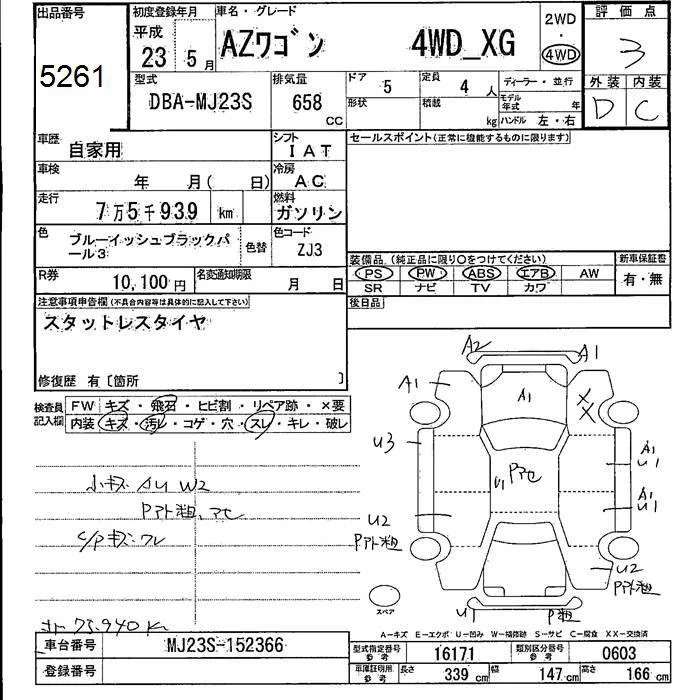 出品番号
5261
初度登録年月
平成
23年 5月
車名・グレード
AZワゴン 4WD_XG
2WD
・
4WD
評価点
3
外装 内装
D C
型式
DBA-MJ23S
排気量
658 CC
ドア 5
定員 4人
形状
積載 kg
ディーラー・並行
モデル年式 年
ハンドル 左・右
車歴 自家用
シフト IAT
車検 年 月( 日)
冷房 AC
走行 7万5千939 km
燃料 ガソリン
色 ブルーイッシュブラックパール3
色替
色コード ZJ3
R券 10,100円
名変通知期限 月 日
セールスポイント(正常に機能するものに限ります)
装備品(純正品に限り○をつけてください)
PS PW ABS エアB AW
SR ナビ TV カワ
新車保証書
有・無
後日品
注意事項申告欄(不具合内容等は具体的に記入して下さい)
スタットレスタイヤ
修復歴 有〔箇所 〕
検査員記入欄
FW キズ・飛石・ヒビ割・リペア跡・×要
内装 キズ・汚レ・コゲ・穴・スレ・キレ・破レ
小キズ AU W2
Pアト粗、アセ
C/Pキズ・ワレ
オト 75,940 K
A2
A1
A1
A1
XX
U3
A1
U1
U1
Pアセ
A1
U1
U2
Pアト粗
U2
Pアト粗
U1
P粗
スペア
A-キズ E-エクボ U-凹み W-補修跡 S-サビ C-腐食 XX-交換済
車台番号 MJ23S-152366
登録番号
型式指定番号 参考 16171
類別区分番号 参考 0603
車庫証明用 参考
長さ 339 cm
幅 147 cm
高さ 166 cm